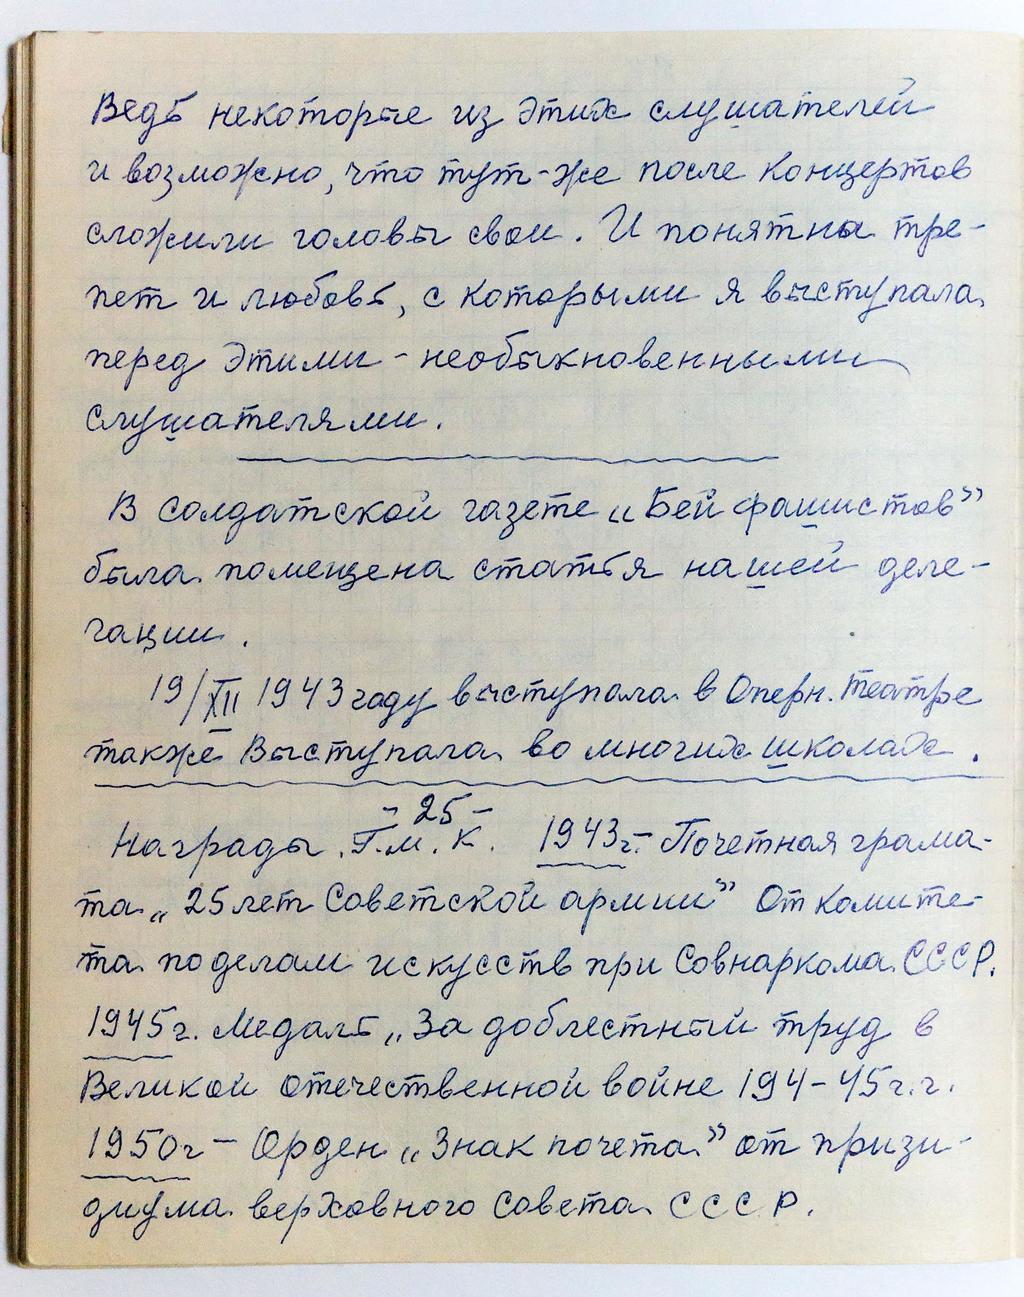 Ведь некоторые из этих слушателей
и возможно, что тут-же после концертов
сложили головы свои. И понятна тре-
пет и любовь, с которыми я выступала
перед этими - необыкновенными
слушателями.
В солдатской газете „Бей фашистов”
была помещена статья нашей деле-
гации.
19/XII 1943 году выступала в Оперн. театре
также Выступала во многих школах.
- 25 -
Награды Г.М.К. 1943г. - Почетная грама-
та „25 лет Советской армии” От комите-
та по делам искусств при Совнаркома СССР.
1945г. Медаль „За доблестный труд в
Великой отечественной войне 194-45г.г.
1950г - Орден „Знак почета” от призи-
диума верховного Совета СССР.